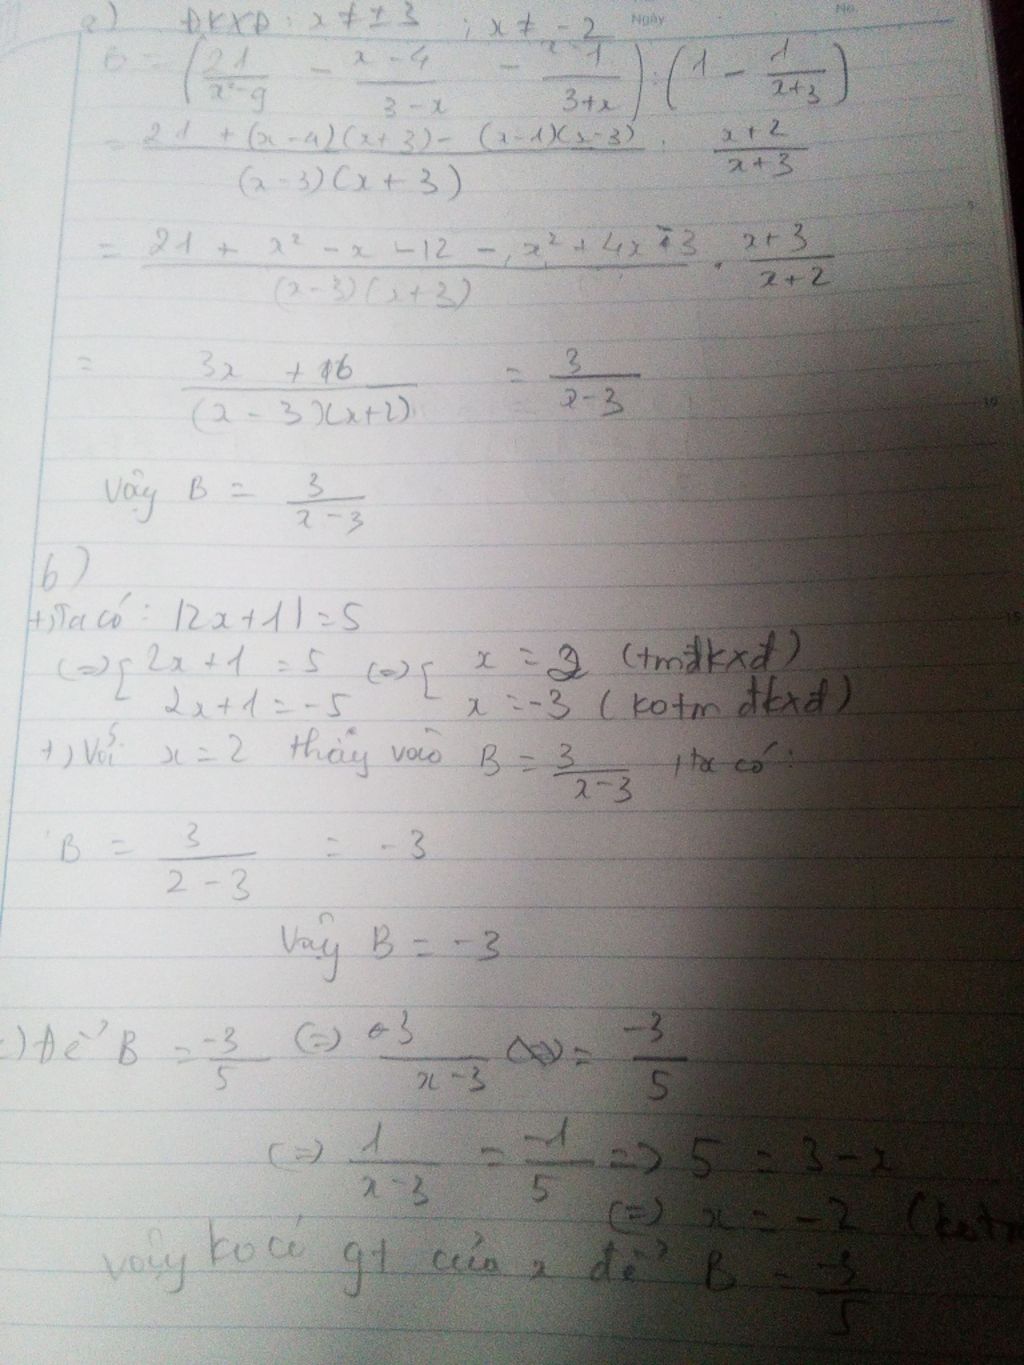 a) ĐKXĐ: x ≠ ± 3 ; x ≠ - 2
Ngày No.
B = ( 21/(x²-9) - (x-4)/(3-x) - (x-1)/(3+x) ) : ( 1 - 1/(x+3) )
= (21 + (x-4)(x+3) - (x-1)(x-3))/((x-3)(x+3)) : (x+2)/(x+3)
= (21 + x² - x - 12 - x² + 4x - 3)/((x-3)(x+3)) . (x+3)/(x+2)
= (3x + 6)/((x-3)(x+2)) = 3/(x-3)
Vậy B = 3/(x-3)
b)
+, Ta có: |2x+1| = 5
(=) { 2x+1 = 5 (=) { x = 2 (tmđkxđ)
2x+1 = -5 x = -3 (kotm đkxđ)
+, Với x = 2 thấy vào B = 3/(x-3) , ta có:
B = 3/(2-3) = -3
Vậy B = -3
c) Để B = -3/5 (=) 3/(x-3) = -3/5
(=) 1/(x-3) = -1/5 => 5 = 3-x
(=) x = -2 (kotm
vậy ko có gt của x để B = -3/5